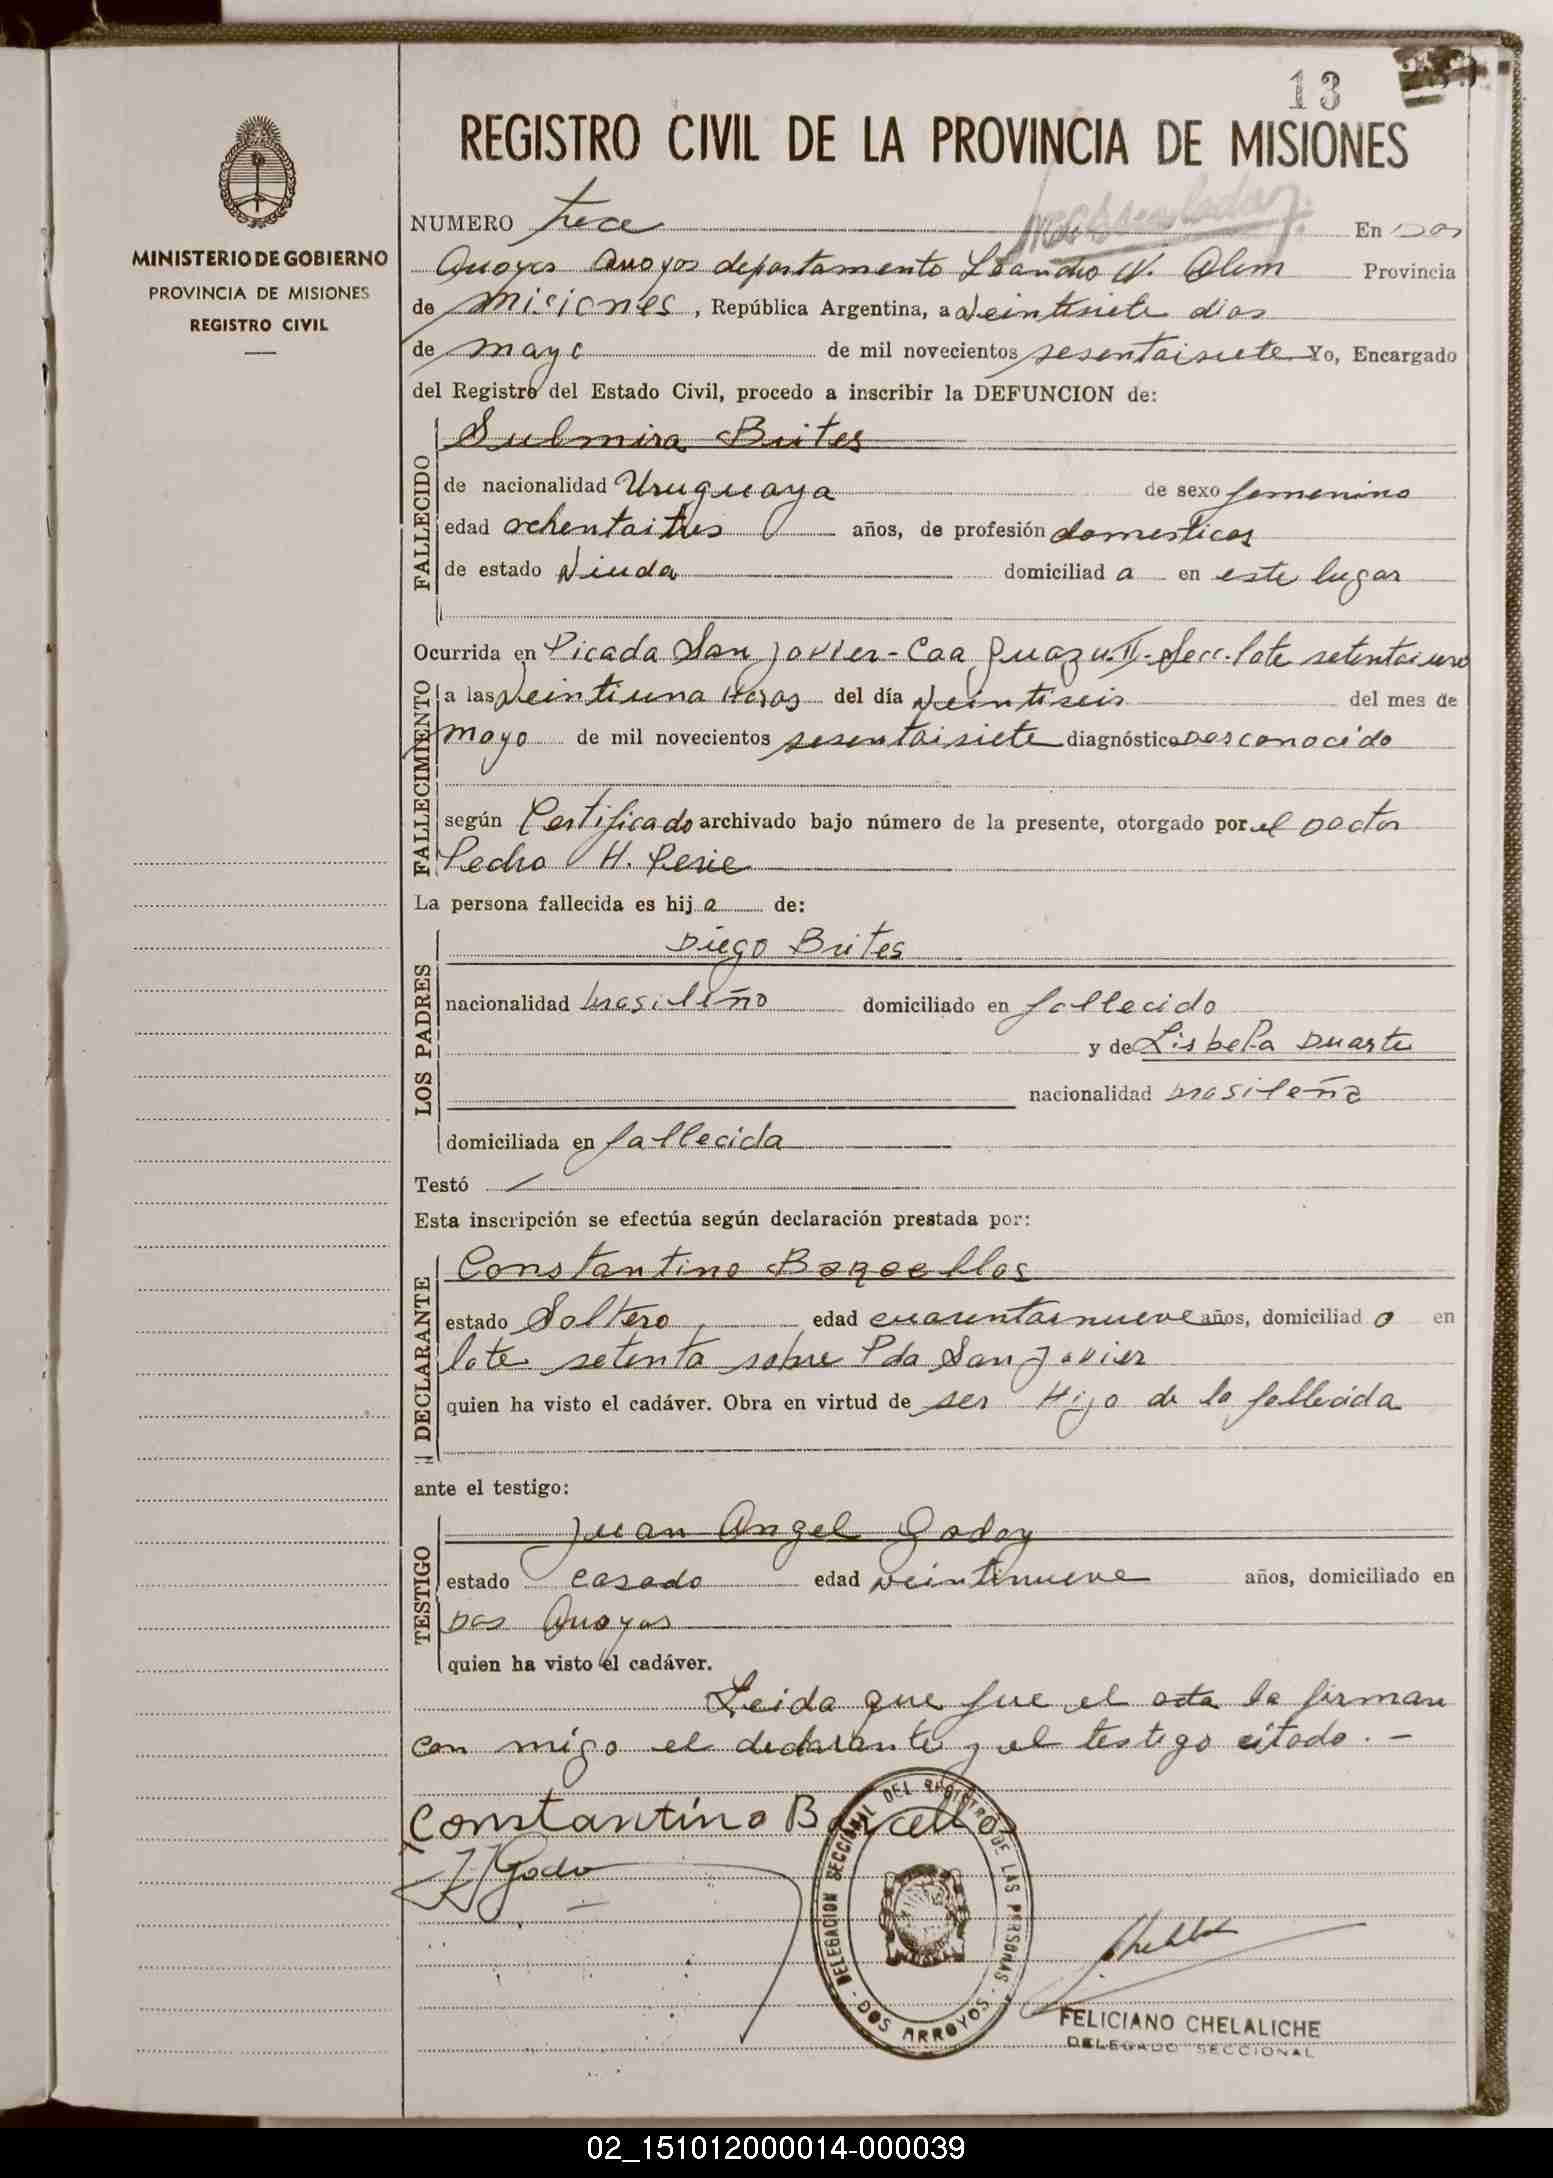 13
REGISTRO CIVIL DE LA PROVINCIA DE MISIONES
MINISTERIO DE GOBIERNO
PROVINCIA DE MISIONES
REGISTRO CIVIL
NUMERO trece En Dos
Arroyos Arroyos departamento Leandro N. Alem Provincia
de Misiones, República Argentina, a veintisiete dias
de mayo de mil novecientos sesentaisiete Yo, Encargado
del Registro del Estado Civil, procedo a inscribir la DEFUNCION de:
FALLECIDO
Sulmira Brites
de nacionalidad Uruguaya de sexo femenino
edad ochentaitres años, de profesión domesticos
de estado Viuda domiciliad a en este lugar
Ocurrida en Picada San Javier - Caa Guazu. II - Secc. lote setentaiuno
FALLECIMIENTO
a las veintiuna Horas del día veintiseis del mes de
mayo de mil novecientos sesentaisiete diagnóstico Desconocido
según Certificado archivado bajo número de la presente, otorgado por el Doctor
Pedro H.
La persona fallecida es hij a de:
LOS PADRES
Diego Brites
nacionalidad brasileño domiciliado en fallecido
y de Lisbela Duarte
nacionalidad brasileña
domiciliada en fallecida
Testó
Esta inscripción se efectúa según declaración prestada por:
DECLARANTE
Constantino Barcellos
estado Soltero, edad cuarentainueve años, domiciliad o en
lote setenta sobre Pda San Javier
quien ha visto el cadáver. Obra en virtud de ser Hijo de la fallecida
ante el testigo:
TESTIGO
Juan Angel Godoy
estado casado edad veintinueve años, domiciliado en
Dos Arroyos
quien ha visto el cadáver.
Leida que fue el acta la firman
con migo el declarante y el testigo citado. -
Constantino Barcellos
JAGodoy
DELEGACION SECCIONAL DEL REGISTRO DE LAS PERSONAS - DOS ARROYOS -
FELICIANO CHELALICHE
DELEGADO SECCIONAL
02_151012000014-000039